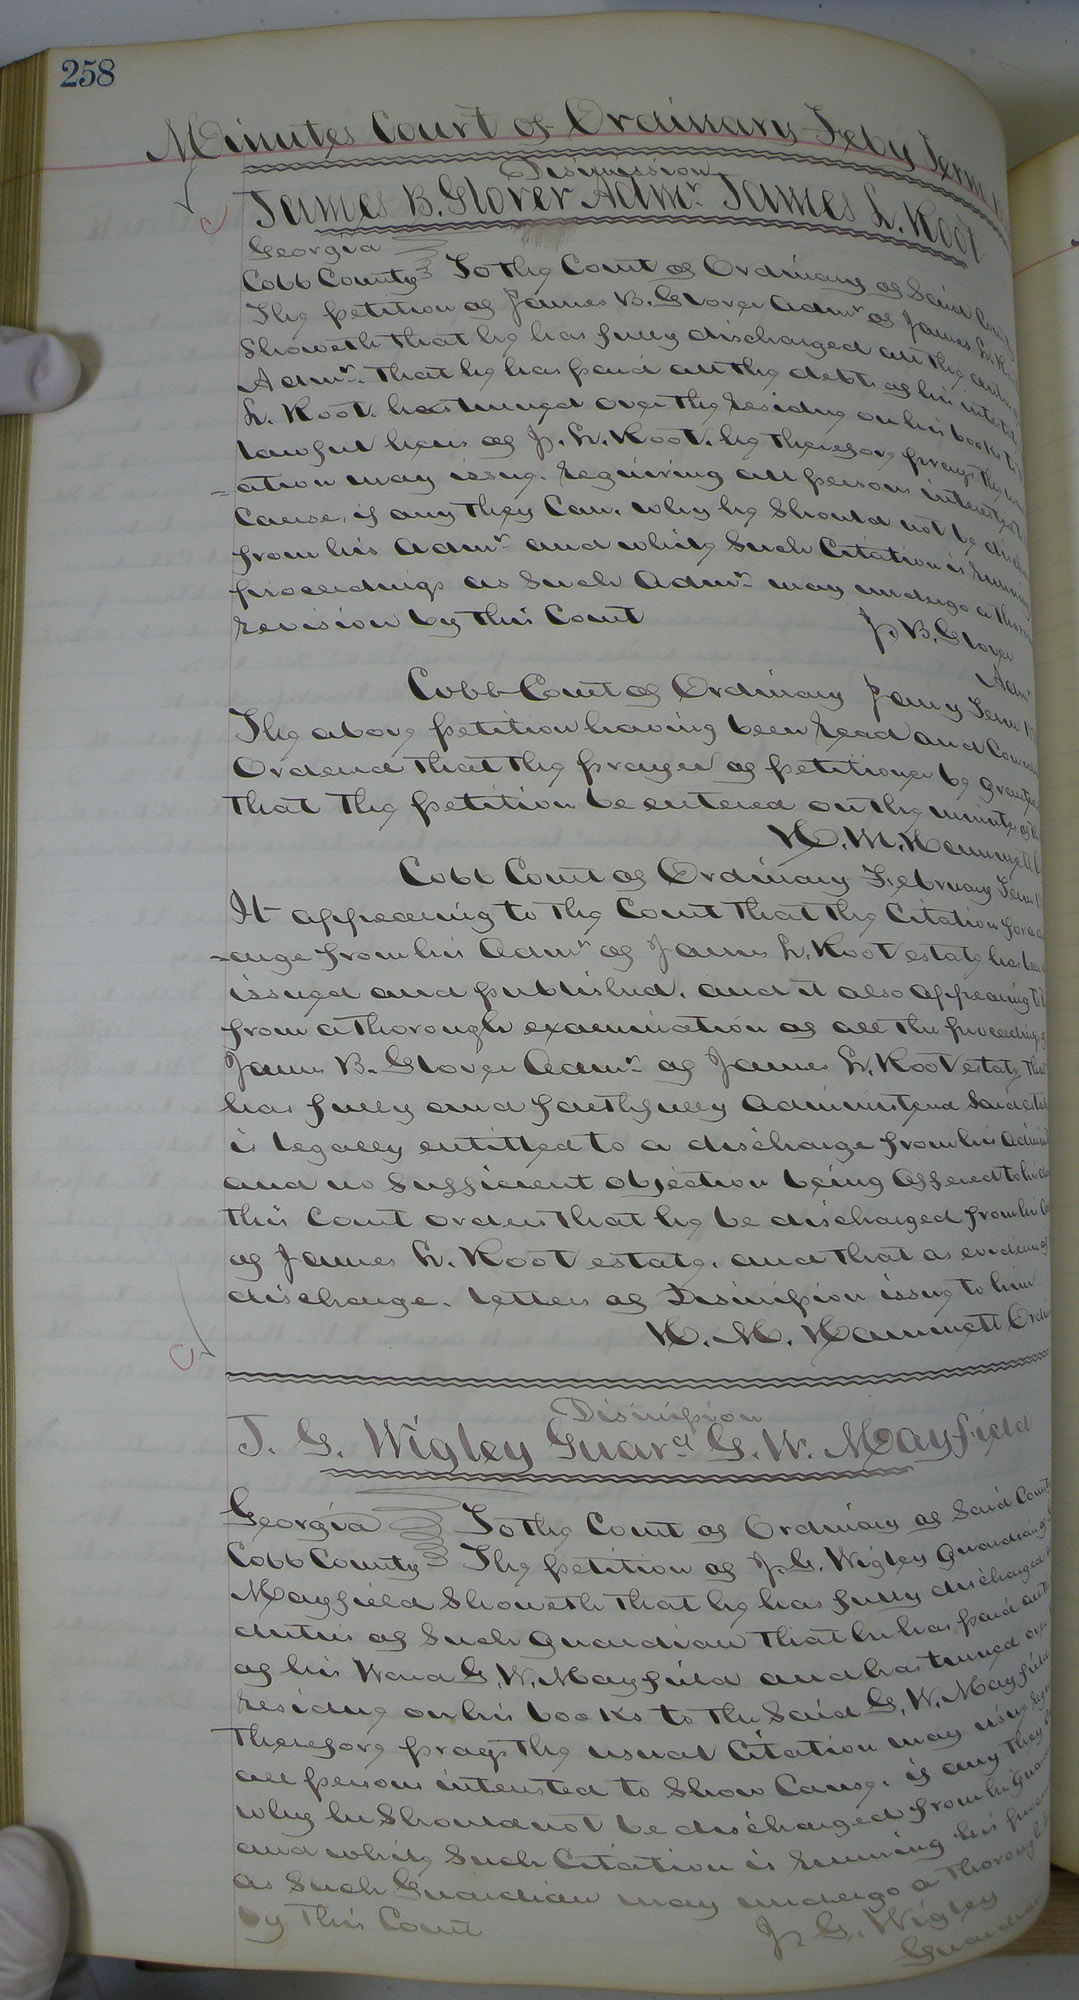 258
Minutes Court of Ordinary Feby Term
Dismission
James B. Glover Admr. James L. Root
Georgia
Cobb County To the Court of Ordinary of Said County
The petition of James B. Glover Admr of James L.
Showeth that he has fully discharged all the
Admr. that he has paid all the debts of his
L. Root. has turned over the residue on his books
lawful heirs of J. L. Root. he therefore prays the
=ation may issue. requiring all persons
Cause, if any they Can. why he Should not be
from his Admr and while Such Citation is running
proceedings as Such Admr may undergo a
revision by this Court
J. B. Glover
Admr
Cobb Court of Ordinary Jany Term
The above petition having been read and
Ordered that the prayer of petitioner be granted
that the petition be entered on the minutes of
H. M. Hammett
Cobb Court of Ordinary February Term
It appearing to the Court that the Citation for
=arge from his Admr of James L. Root estate has been
issued and published. and it also appearing
from a thorough examination of all the proceedings
James B. Glover Admr of James L. Root estate that
has fully and faithfully Administered Said
is legally entitled to a discharge from his
and no Sufficient objection being offered to his
this Court orders that he be discharged from his
of James L. Root estate. and that as evidence of
discharge. letters of Dismission issue to him
H. M. Hammett
Dismission
J. G. Wigley Guard G. W. Mayfield
Georgia To the Court of Ordinary of Said County
Cobb County The petition of J. G. Wigley Guardian
Mayfield Showeth that he has fully discharged
duties of Such Guardian that he has paid
of his Ward G. W. Mayfield and has turned over
residue on his books to the Said G. W. Mayfield
Therefore prays the usual Citation may issue
all persons intersted to Show Cause. if any they
why he Should not be discharged from his
and while Such Citation is running his
as Such Guardian may undergo a thorough
by this Court
J. G. Wigley
Guardian